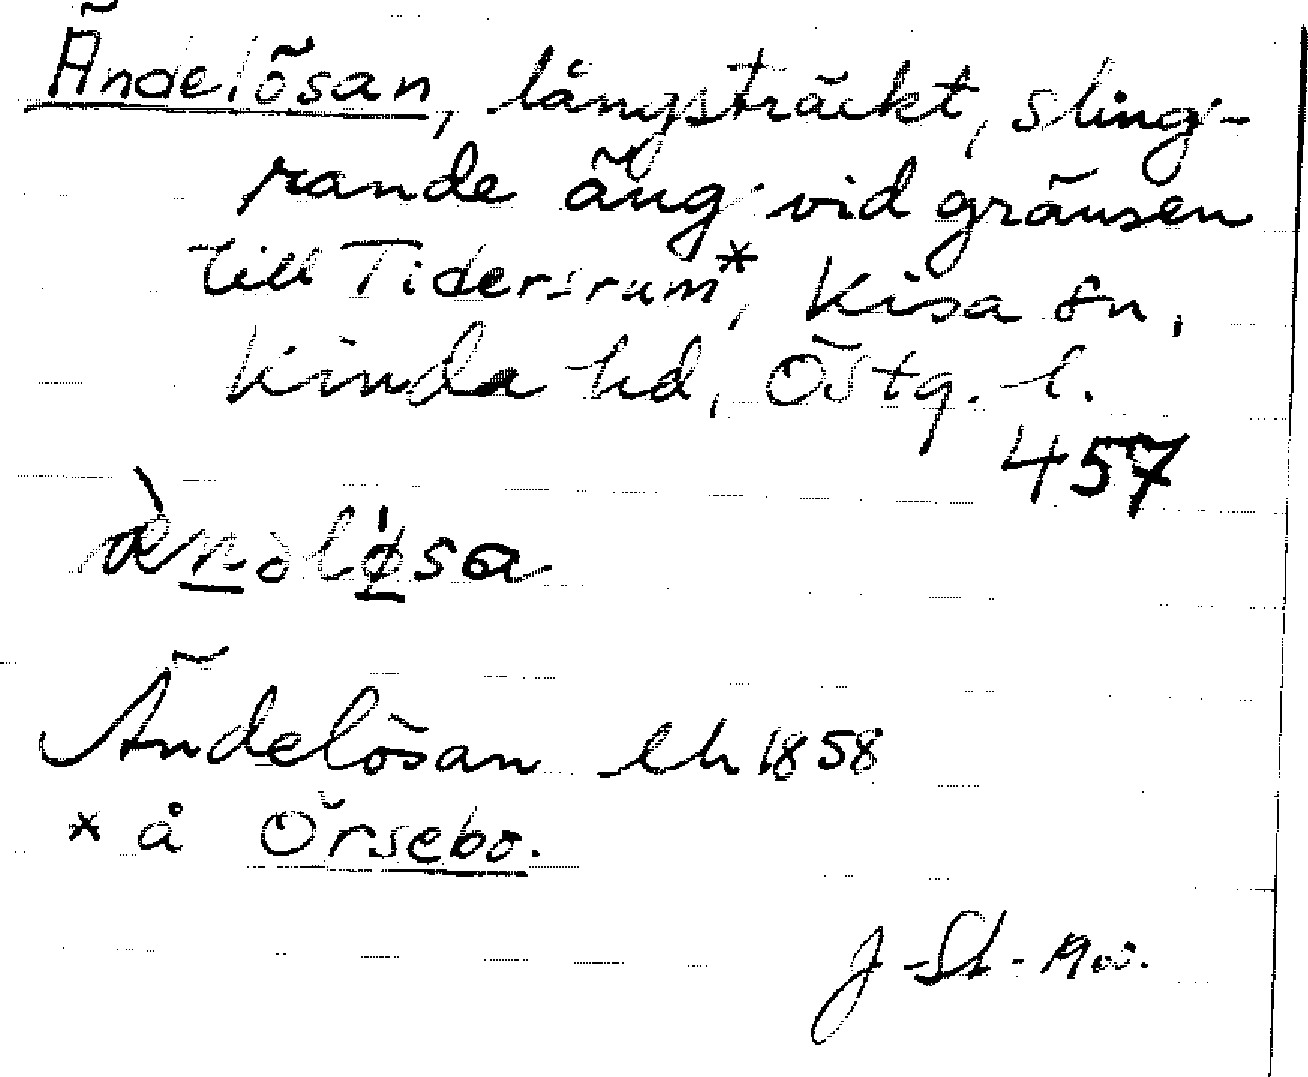 Ändelösan, långsträckt, sling-
rande äng vid gränsen
till Tidersrum*, Kisa sn,
Kinda hd, Östg. l.
457
ǹəlø̀sa
Ändelösan lh 1858
* å Örsebo.
J. St. 1900.